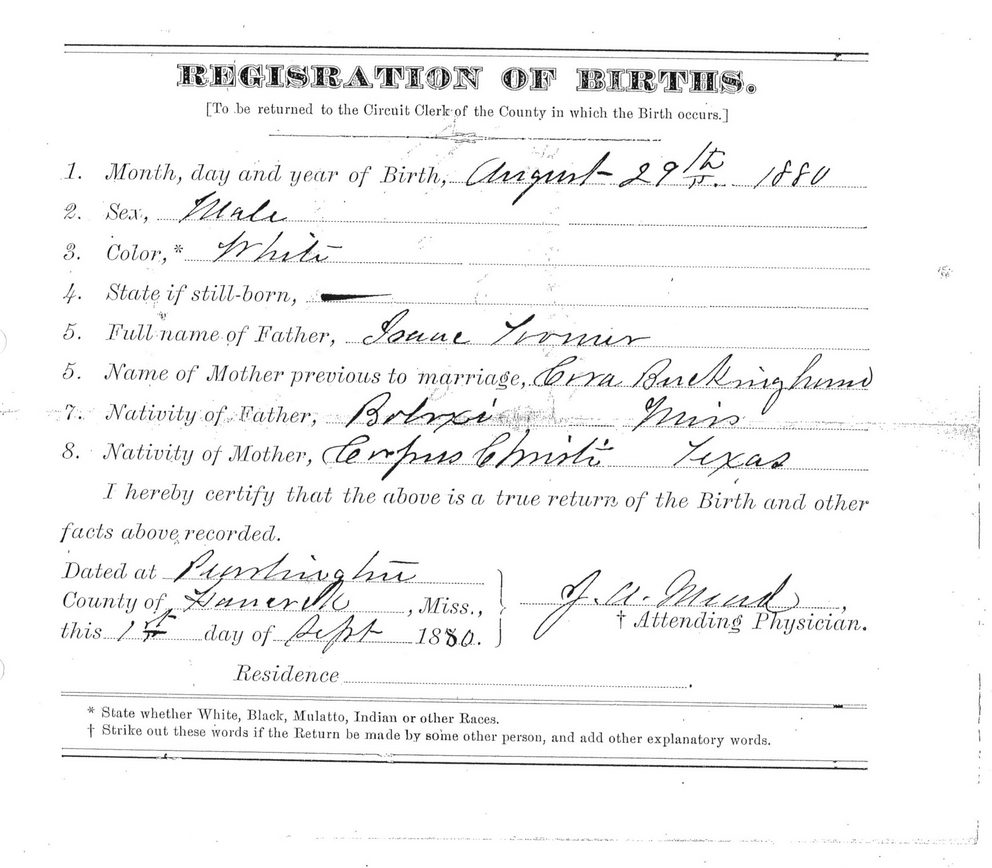 REGISRATION OF BIRTHS.
[To be returned to the Circuit Clerk of the County in which the Birth occurs.]
1. Month, day and year of Birth, August 29th 1880
2. Sex, Male
3. Color,* White
4. State if still-born, —
5. Full name of Father, Isaac Toomer
5. Name of Mother previous to marriage, Cora Buckingham
7. Nativity of Father, Boloxi Miss
8. Nativity of Mother, Corpus Christi Texas
I hereby certify that the above is a true return of the Birth and other
facts above recorded.
Dated at
County of Hancock, Miss.,
this 1st day of Sept 1880.
J. A. Mead,
† Attending Physician.
Residence
* State whether White, Black, Mulatto, Indian or other Races.
† Strike out these words if the Return be made by some other person, and add other explanatory words.